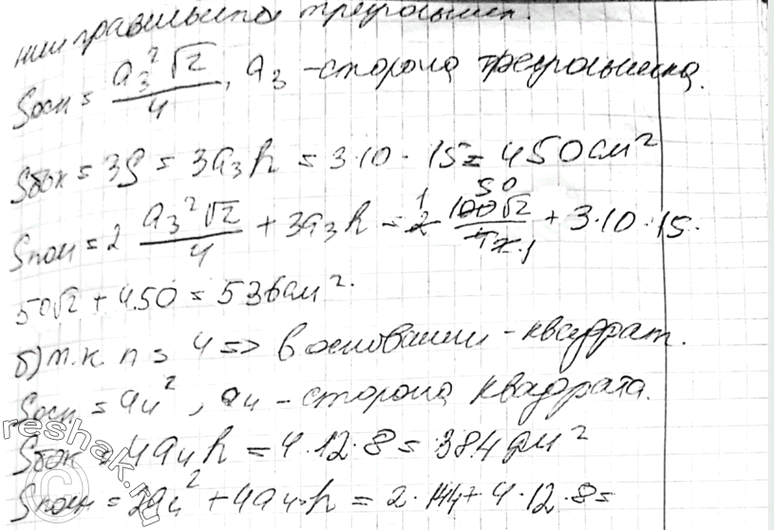 нии правильный треугольник.
Sосн = a₃²√2/4, a₃ - сторона треугольника.
Sбок = 3S = 3a₃h = 3·10·15 = 450 см²
Sпол = 2 a₃²√2/4 + 3a₃h = 2 100√2/4 + 3·10·15.
50√2 + 450 = 536 см².
б) т.к. n = 4 => в основании - квадрат.
Sосн = a₄², a₄ - сторона квадрата.
Sбок = 4a₄h = 4·12·8 = 384 дм²
Sпол = 2a₄² + 4a₄·h = 2·144 + 4·12·8 =
reshak.ru